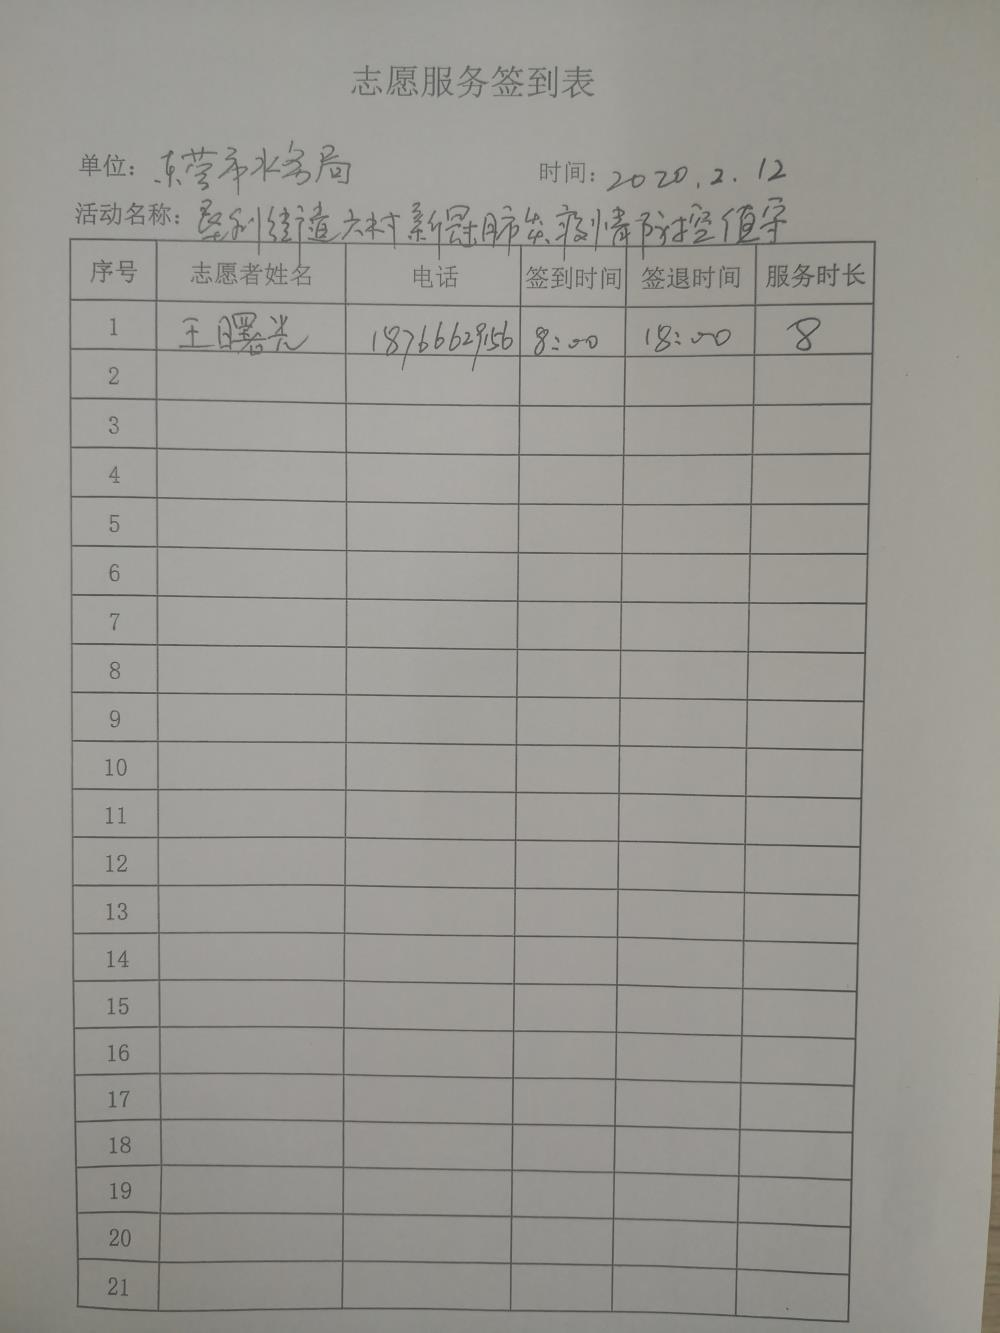 志愿服务签到表
单位：东营市水务局 时间：2020.2.12
活动名称：垦利街道六村新冠肺炎疫情防控值守
序号 志愿者姓名 电话 签到时间 签退时间 服务时长
1 王曙光 18766629156 8:00 18:00 8
2
3
4
5
6
7
8
9
10
11
12
13
14
15
16
17
18
19
20
21